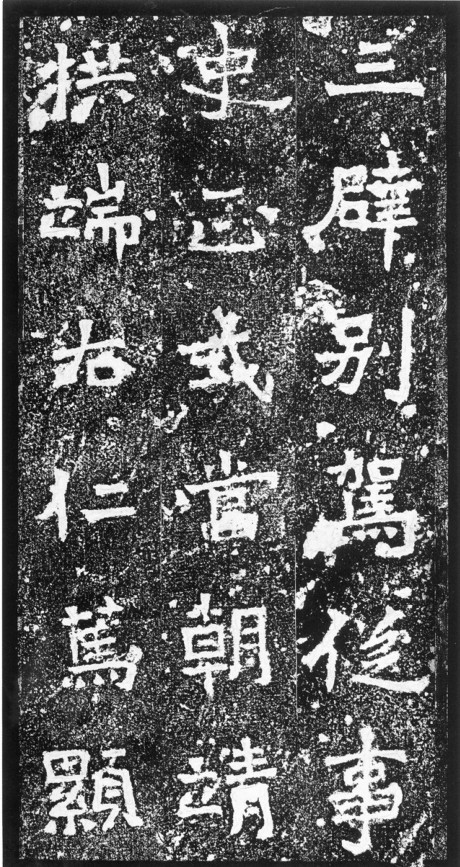 三辟别駕從事
史正式當朝靖
拱端右仁篤顯